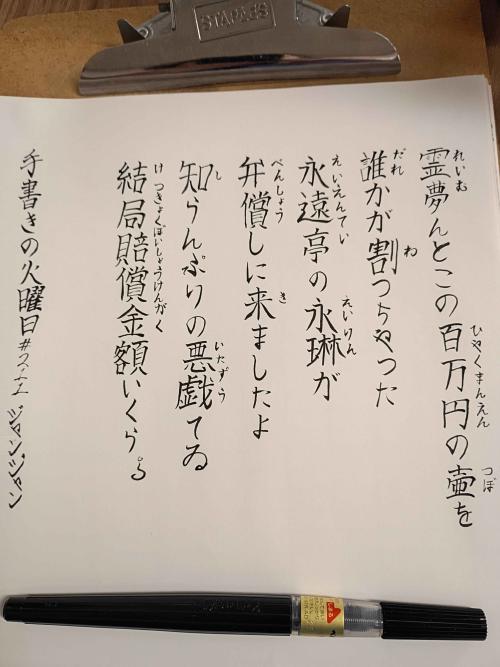 STAPLES
れいむ ひゃくまんえん つぼ
霊夢んとこの百万円の壷を
だれ わ
誰かが割っちゃった
えいえんてい えいりん
永遠亭の永琳が
べんしょう き
弁償しに来ましたよ
し いたずう
知らんぷりの悪戯てゐ
けつきょくばいしょうけんがく
結局賠償金額いくらる
手書きの火曜日#211 ジャンジャン